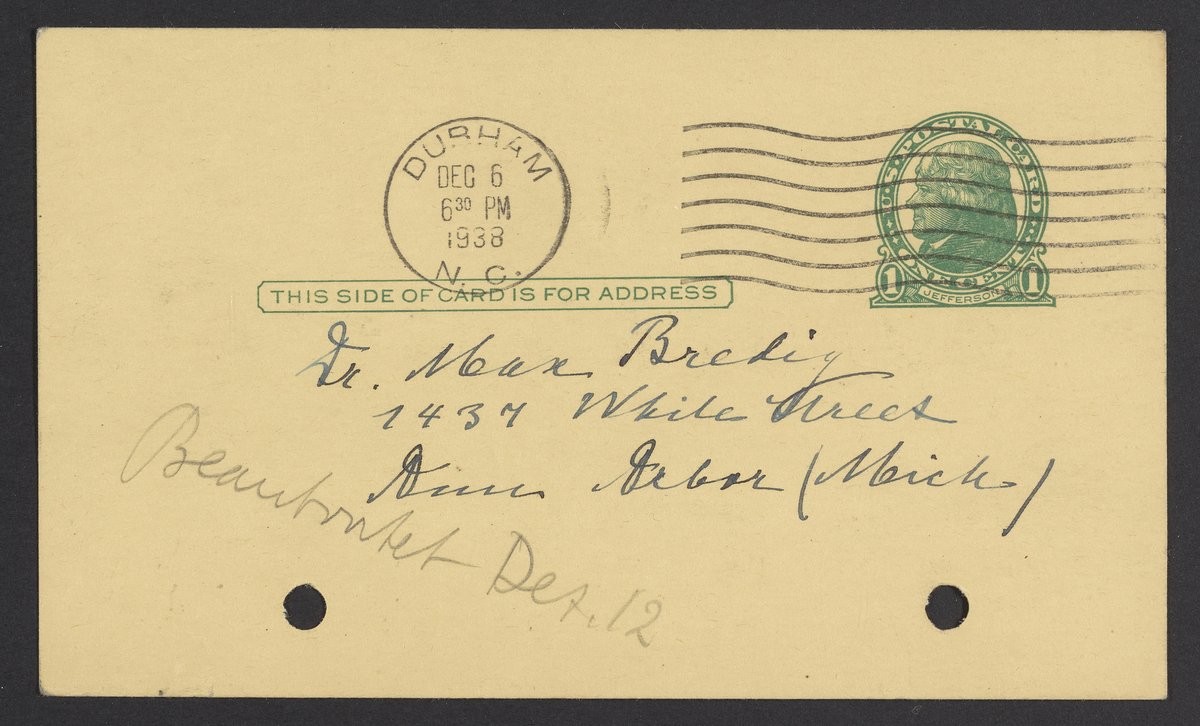 DURHAM
DEC 6
6³⁰ PM
1938
N. C.
U·S·POSTAL·CARD·
ONE CENT
1 JEFFERSON 1
THIS SIDE OF CARD IS FOR ADDRESS
Dr. Max Bredig
1437 White Street
Ann Arbor (Mich)
Beantwortet Dez. 12